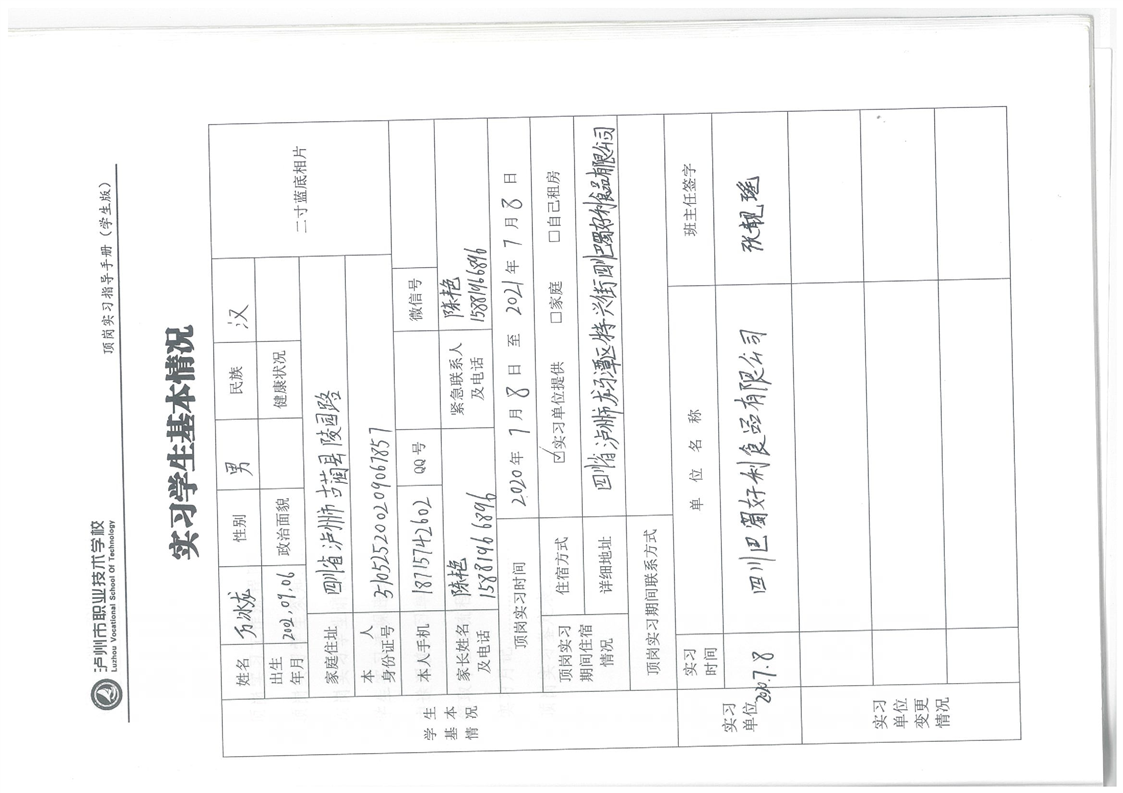 泸州市职业技术学校
Luzhou Vocational School Of Technology
顶岗实习指导手册（学生版）
实习学生基本情况
学生基本情况
姓名 万冰龙 性别 男 民族 汉
二寸蓝底相片
出生年月 2002.09.06 政治面貌 健康状况
家庭住址 四川省泸州市古蔺县陵园路
本人身份证号 510525200209067857
本人手机 18715742602 QQ号 微信号
家长姓名及电话 陈艳 15881966896 紧急联系人及电话 陈艳 15881966896
顶岗实习时间 2020年7月8日至2021年7月8日
顶岗实习期间住宿情况 住宿方式 ☑实习单位提供 □家庭 □自己租房
详细地址 四川省泸州市龙马潭区特兴街四川巴蜀好利食品有限公司
顶岗实习期间联系方式
实习单位 实习时间 单位名称 班主任签字
2020.7.8 四川巴蜀好利食品有限公司 张靓瑶
实习单位变更情况